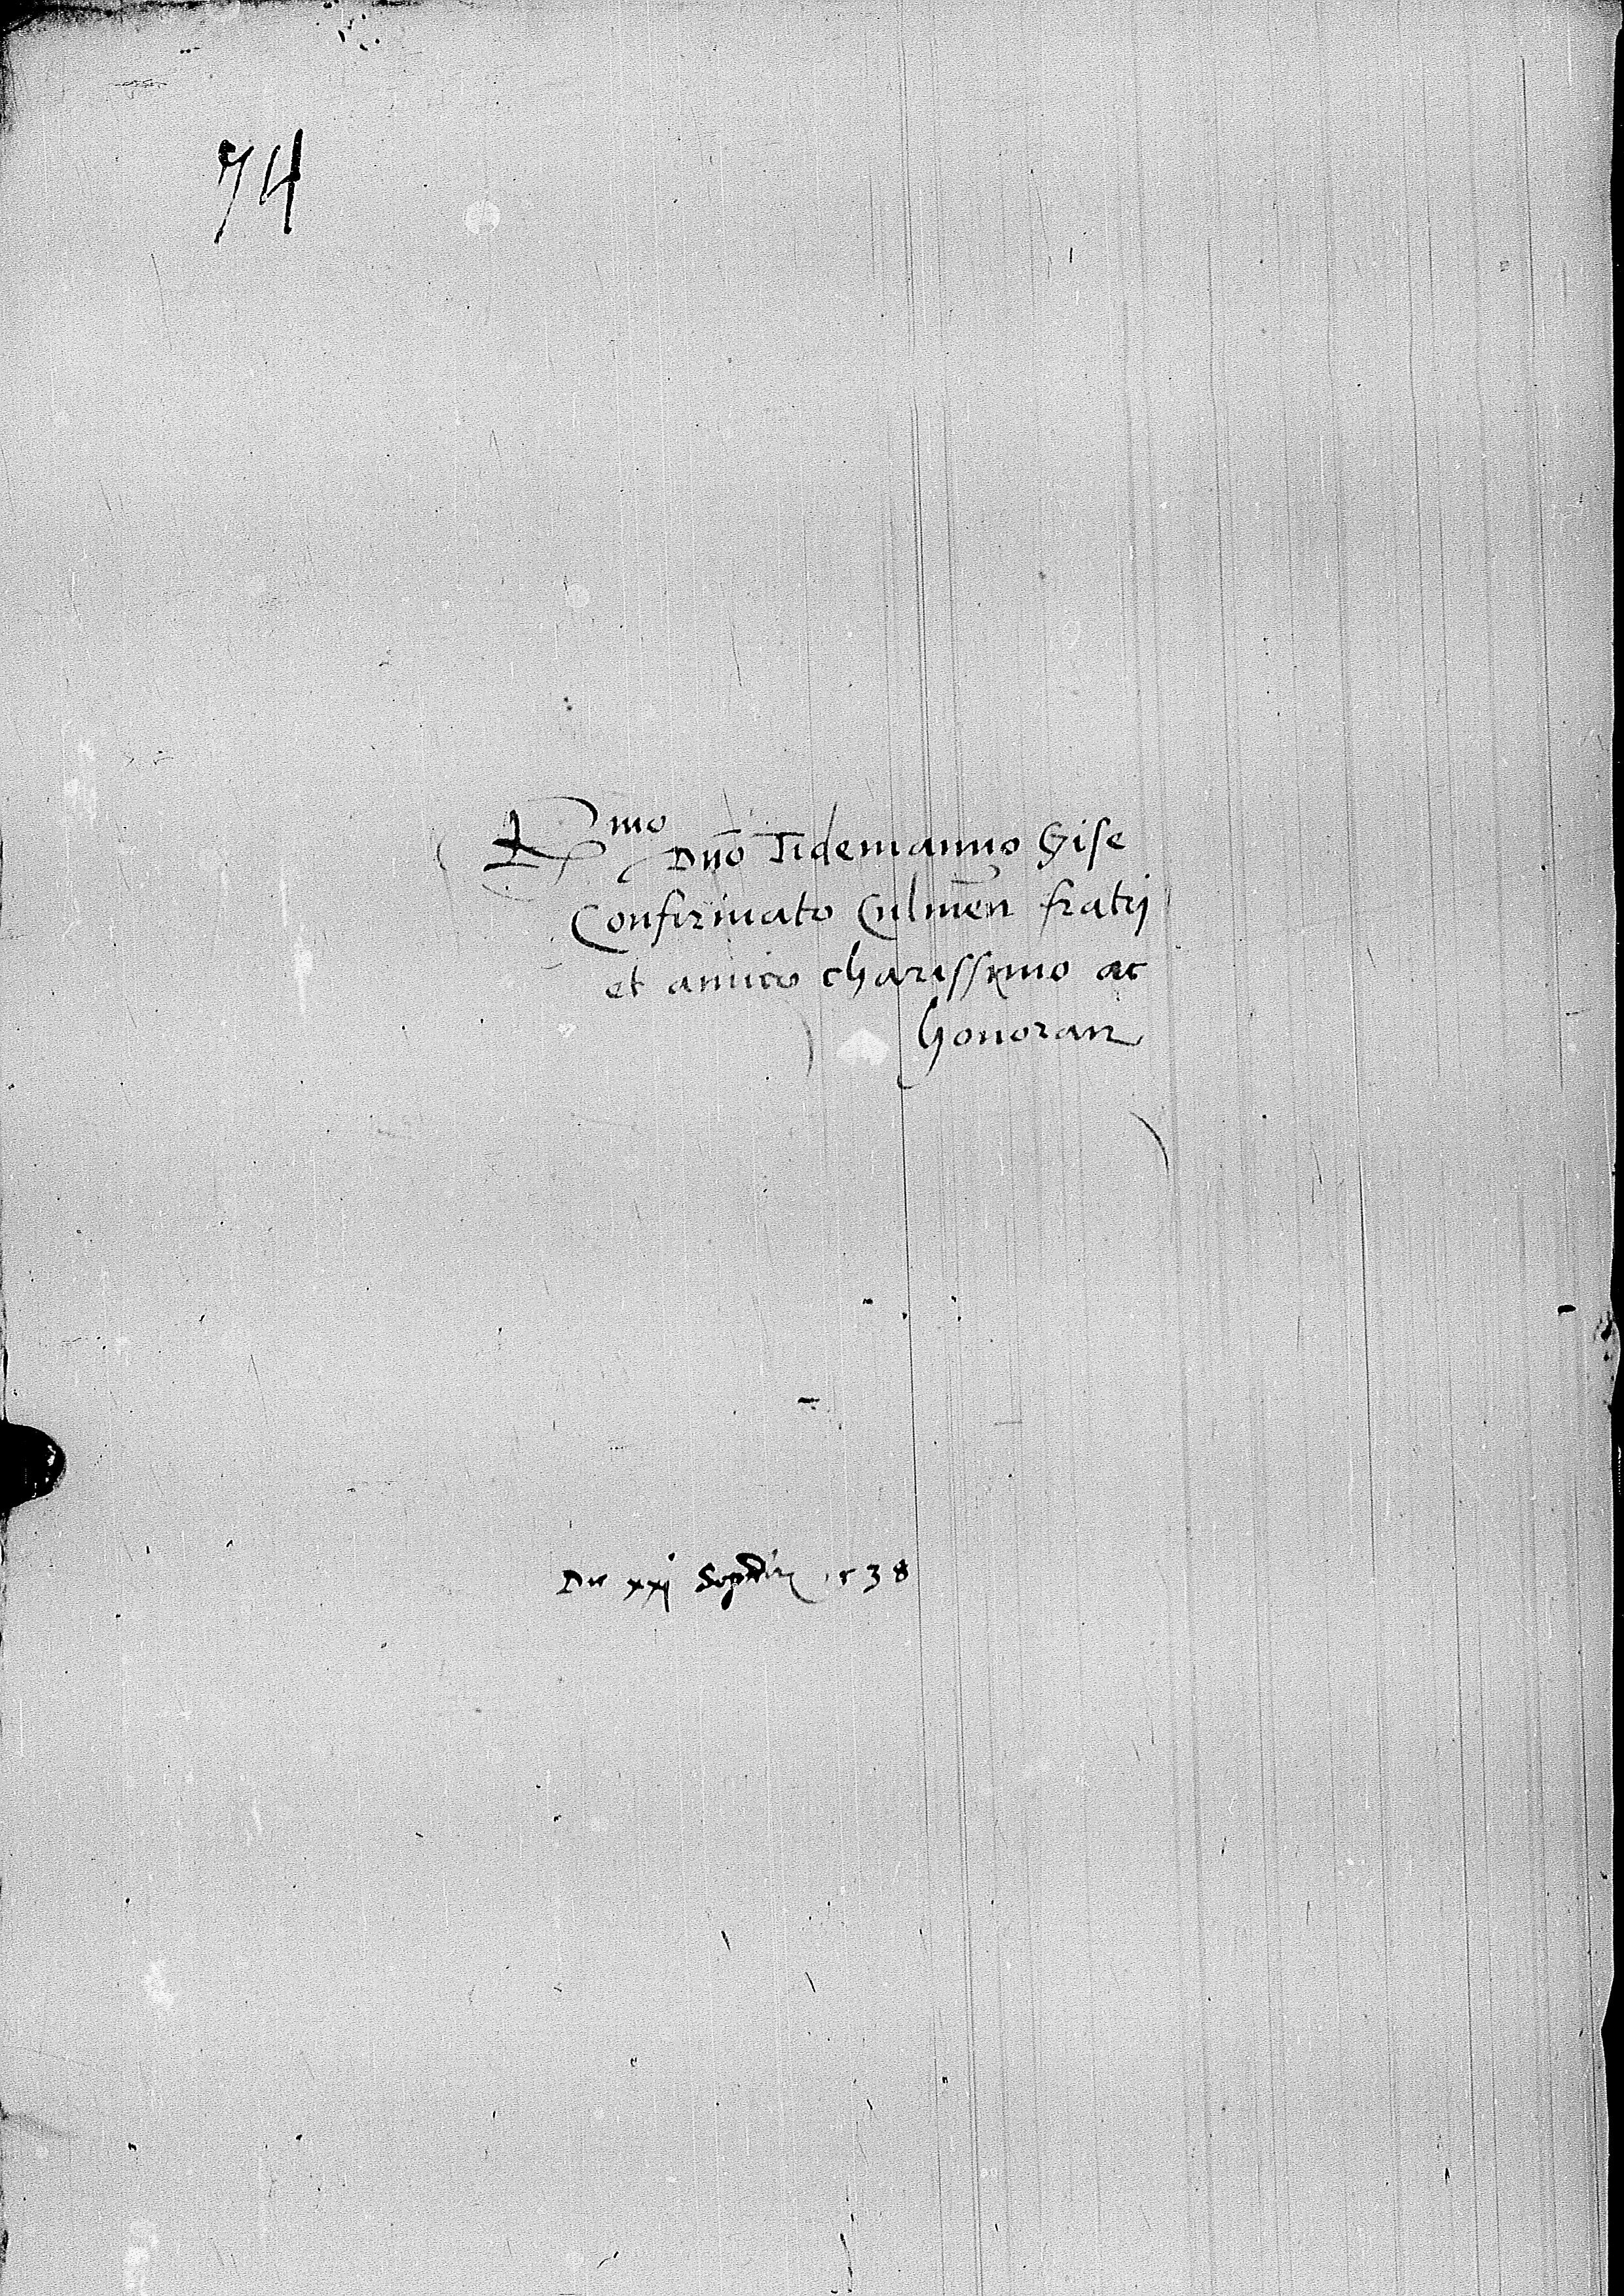 74
Rmo
Dno Tidemanno Gise
Confirmato Culmen fratri
et amico charissimo ac
honoran
Die xxj Septembris 1538